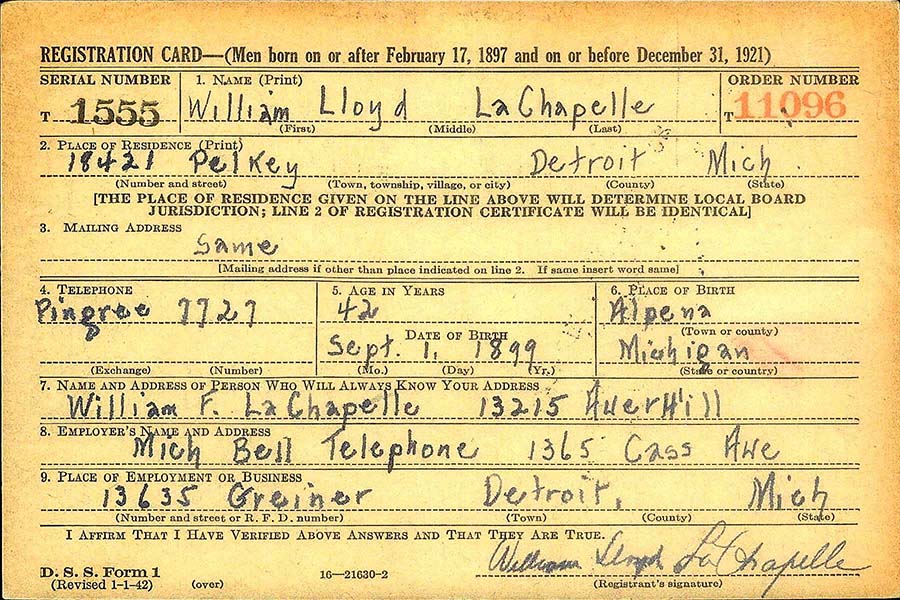 REGISTRATION CARD—(Men born on or after February 17, 1897 and on or before December 31, 1921)
SERIAL NUMBER 1. NAME (Print) ORDER NUMBER
T 1555 William Lloyd LaChapelle T 11096
(First) (Middle) (Last)
2. PLACE OF RESIDENCE (Print)
18421 Pelkey Detroit Mich
(Number and street) (Town, township, village, or city) (County) (State)
[THE PLACE OF RESIDENCE GIVEN ON THE LINE ABOVE WILL DETERMINE LOCAL BOARD
JURISDICTION; LINE 2 OF REGISTRATION CERTIFICATE WILL BE IDENTICAL]
3. MAILING ADDRESS
Same
[Mailing address if other than place indicated on line 2. If same insert word same]
4. TELEPHONE 5. AGE IN YEARS 6. PLACE OF BIRTH
Pingree 7727 42 Alpena
DATE OF BIRTH (Town or county)
Sept. 1, 1899 Michigan
(Exchange) (Number) (Mo.) (Day) (Yr.) (State or country)
7. NAME AND ADDRESS OF PERSON WHO WILL ALWAYS KNOW YOUR ADDRESS
William F. LaChapelle 13215 AverHill
8. EMPLOYER'S NAME AND ADDRESS
Mich Bell Telephone 1365 Cass Ave
9. PLACE OF EMPLOYMENT OR BUSINESS
13635 Greiner Detroit, Mich
(Number and street or R. F. D. number) (Town) (County) (State)
I AFFIRM THAT I HAVE VERIFIED ABOVE ANSWERS AND THAT THEY ARE TRUE.
William Lloyd LaChapelle
D. S. S. Form 1
(Revised 1-1-42) (over) 16—21630-2 (Registrant's signature)